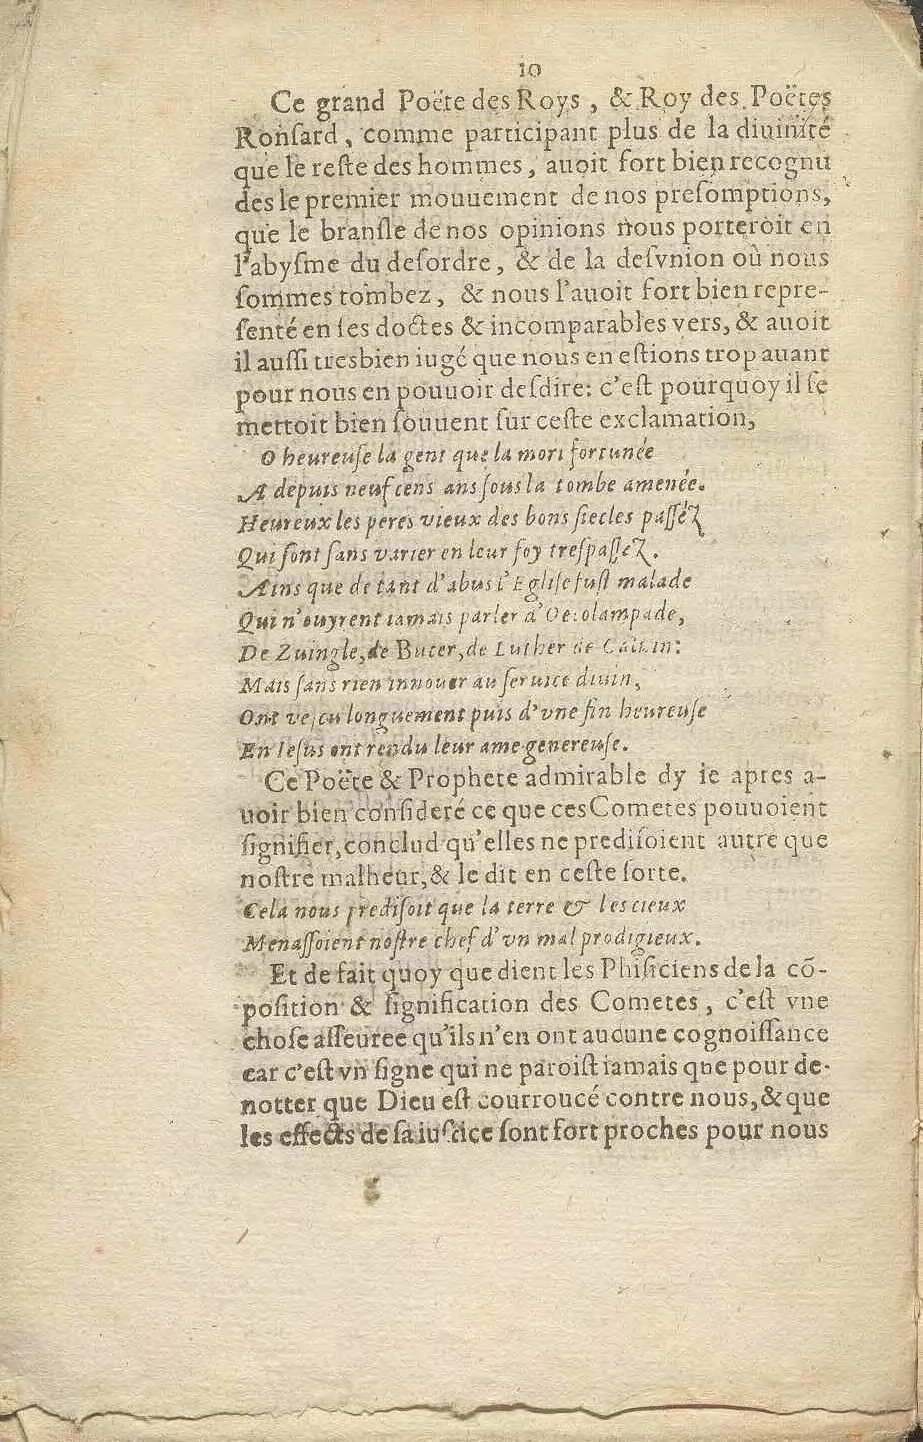 10
Ce grand Poëte des Roys, & Roy des Poëtes
Ronſard, comme participant plus de la diuinité
que le reſte des hommes, auoit fort bien recognu
des le premier mouuement de nos preſomptions,
que le branſle de nos opinions nous porteroit en
l'abyſme du deſordre, & de la deſvnion où nous
ſommes tombez, & nous l'auoit fort bien repre-
ſenté en ſes doctes & incomparables vers, & auoit
il auſſi tresbien iugé que nous en eſtions trop auant
pour nous en pouuoir deſdire: c'eſt pourquoy il ſe
mettoit bien ſouuent ſur ceſte exclamation,
O heureuſe la gent que la mort fortunée
A depuis neuf cens ans ſous la tombe amenée.
Heureux les peres vieux des bons ſiecles paſſéz
Qui ſont ſans varier en leur foy treſpaſſez.
Ains que de tant d'abus l'Egliſe fuſt malade
Qui n'ouyrent iamais parler d'Oecolampade,
De Zuingle, de Bucer, de Luther de Caluin:
Mais ſans rien innouer au ſeruice diuin,
Ont veſcu longuement puis d'vne fin heureuſe
En Ieſus ont rendu leur ame genereuſe.
Ce Poëte & Prophete admirable dy ie apres a-
uoir bien conſideré ce que ces Cometes pouuoient
ſignifier, conclud qu'elles ne prediſoient autre que
noſtre malheur, & le dit en ceſte ſorte.
Cela nous prediſoit que la terre & les cieux
Menaſſoient noſtre chef d'vn mal prodigieux.
Et de fait quoy que dient les Phiſiciens de la cō-
poſition & ſignification des Cometes, c'eſt vne
choſe aſſeuree qu'ils n'en ont aucune cognoiſſance
car c'eſt vn ſigne qui ne paroiſt iamais que pour de-
notter que Dieu eſt courroucé contre nous, & que
les effects de ſa iuſtice ſont fort proches pour nous